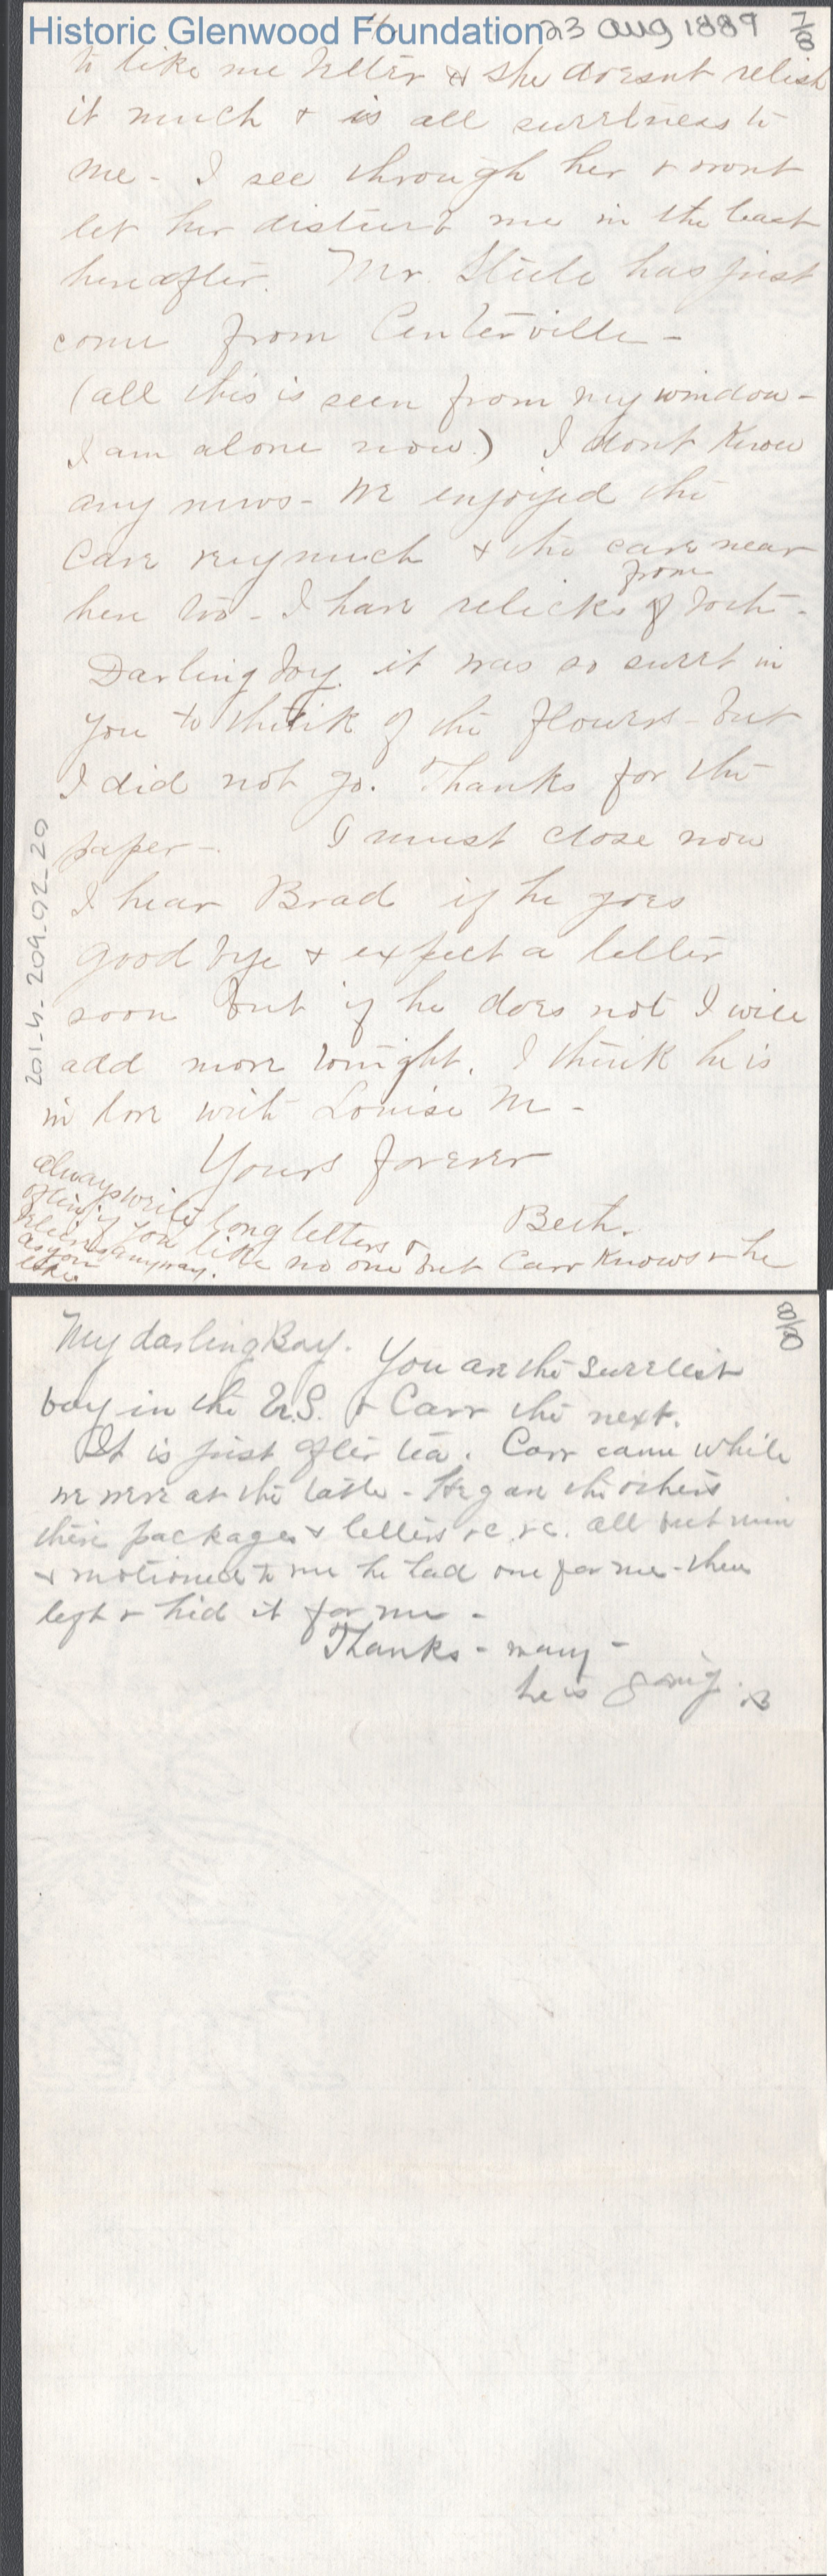 Historic Glenwood Foundation 23 Aug 1889 7/8
to like me better & she doesnt relish
it much & is all sweetness to
me - I see through her & wont
let her disturb me in the least
hereafter. Mr. Steele has just
come from Centerville -
(all this is seen from my window -
I am alone now.) I dont know
any news - We enjoyed the
Cave very much & the cave near
from
here too - I have relicks of both -
Darling boy it was so sweet in
you to think of the flowers - but
I did not go. Thanks for the
paper - I must close now
I hear Brad if he goes
good bye & expect a letter
soon but if he does not I will
add more tonight. I think he is
in love with Louise M -
Yours forever
Beth.
always write long letters &
often if you like no one but Carr knows & he
anyway.
as you
like.
201-4-209-02-20
8/8
My darling Boy. You are the sweetest
boy in the U.S. & Carr the next.
It is just after tea. Carr came while
we were at the table - He gave the others
their packages & letters &c. &c. all but mine
& motioned to me he had one for me - then
left & hid it for me -
Thanks - many -
he is going. B